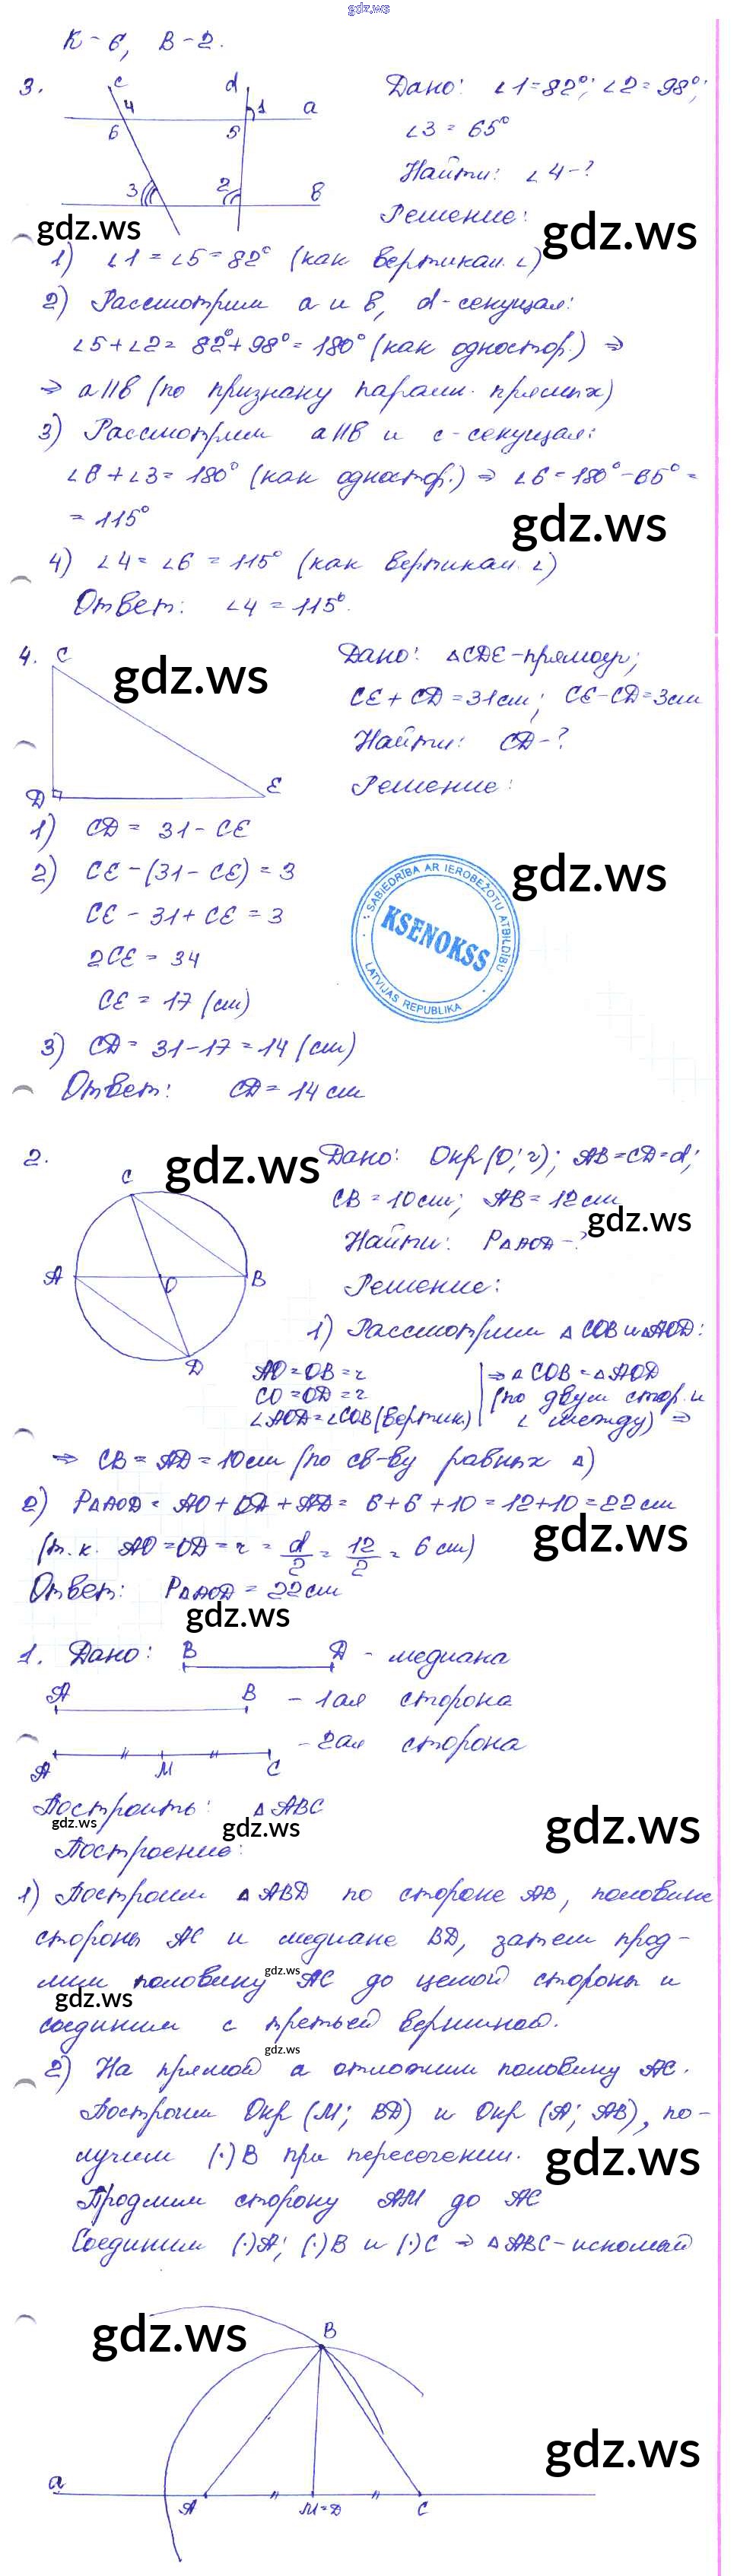 gdz.ws
К-6, В-2.
3.
c
d
4
1
a
6
5
3
2
в
Дано: ∠1=82°; ∠2=98°;
∠3=65°
Найти: ∠4-?
Решение:
gdz.ws
gdz.ws
1) ∠1=∠5=82° (как вертикал. ∠)
2) Рассмотрим a и в, d-секущая:
∠5+∠2=82°+98°=180° (как одностор.) ⇒
⇒ a||в (по признаку паралл. прямых)
3) Рассмотрим a||в и c-секущая:
∠6+∠3=180° (как одностор.) ⇒ ∠6=180°-65°=
=115°
gdz.ws
4) ∠4=∠6=115° (как вертикал. ∠)
Ответ: ∠4=115°.
4.
C
D
E
gdz.ws
Дано: △CDE-прямоуг;
CE+CD=31см; CE-CD=3см
Найти: CD-?
Решение:
1) CD=31-CE
2) CE-(31-CE)=3
gdz.ws
CE-31+CE=3
2CE=34
CE=17 (см)
SABIEDRĪBA AR IEROBEŽOTU ATBILDĪBU
KSENOKSS
LATVIJAS REPUBLIKA
3) CD=31-17=14 (см)
Ответ: CD=14см
2.
gdz.ws
C
A
O
B
D
Дано: Окр(O;r); AB=CD=d;
CB=10см; AB=12см
gdz.ws
Найти: P△AOD-?
Решение:
1) Рассмотрим △COB и △AOD:
AO=OB=r
CO=OD=r
∠AOD=∠COB(вертик)
⇒△COB=△AOD
(по двум стор. и
∠ между) ⇒
⇒ CB=AD=10см (по св-ву равных △)
2) P△AOD=AO+OD+AD=6+6+10=12+10=22см
gdz.ws
(т.к. AO=OD=r=d/2=12/2=6см)
Ответ: P△AOD=22см
gdz.ws
1. Дано: B D - медиана
A B - 1ая сторона
A M C - 2ая сторона
Построить: △ABC
gdz.ws
gdz.ws
gdz.ws
Построение:
1) Построим △ABD по стороне AB, половине
стороны AC и медиане BD, затем прод-
лим половину AC до целой стороны и
gdz.ws
gdz.ws
соединим с третьей вершиной.
gdz.ws
2) На прямой a отложим половину AC.
Построим Окр(M; BD) и Окр(A; AB), по-
лучим (·)B при пересечении.
gdz.ws
Продлим сторону AM до AC
Соединим (·)A; (·)B и (·)C ⇒ △ABC-искомый
gdz.ws
B
gdz.ws
a
A
M=D
C